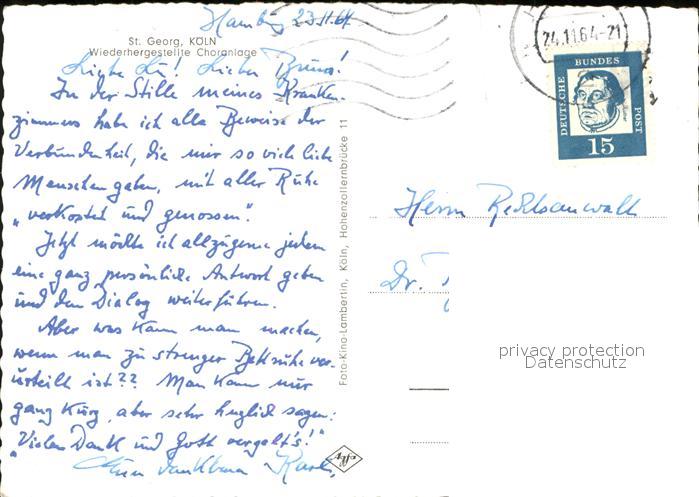 Hamburg 23.11.64
St. Georg, KÖLN
Wiederhergestellte Choranlage
Liebe Lu! Lieber Bruno!
In der Stille meines Kranken-
zimmers habe ich alle Beweise der
Verbundenheit, die mir so viele liebe
Menschen gaben, mit aller Ruhe
„verkostet und genossen".
Jetzt möchte ich allzugerne jedem
eine ganz persönliche Antwort geben
und den Dialog weiterführen.
Aber was kann man machen,
wenn man zu strenger Bettruhe ver-
urteilt ist?? Man kann nur
ganz kurz, aber sehr herzlich sagen:
„Vielen Dank und Gott vergelt's!"
Euer dankbarer
Foto-Kino-Lambertin, Köln, Hohenzollernbrücke 11
24.11.64-21
DEUTSCHE BUNDES POST
15
Herrn Rechtsanwalt
Dr.
privacy protection
Datenschutz